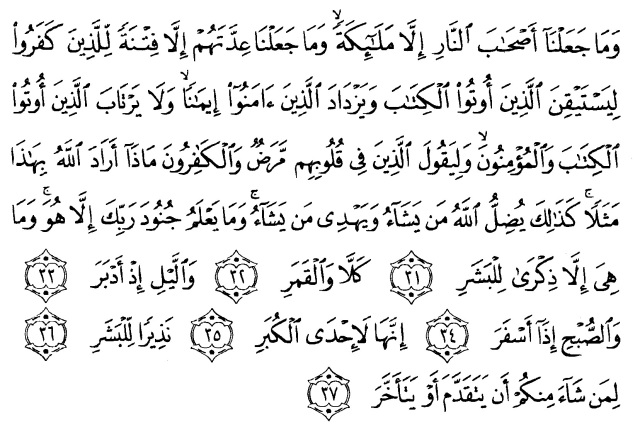 وَمَا جَعَلْنَآ أَصْحَٰبَ ٱلنَّارِ إِلَّا مَلَٰٓئِكَةً ۙ وَمَا جَعَلْنَا عِدَّتَهُمْ إِلَّا فِتْنَةً لِّلَّذِينَ كَفَرُوا۟
لِيَسْتَيْقِنَ ٱلَّذِينَ أُوتُوا۟ ٱلْكِتَٰبَ وَيَزْدَادَ ٱلَّذِينَ ءَامَنُوٓا۟ إِيمَٰنًا ۙ وَلَا يَرْتَابَ ٱلَّذِينَ أُوتُوا۟
ٱلْكِتَٰبَ وَٱلْمُؤْمِنُونَ ۙ وَلِيَقُولَ ٱلَّذِينَ فِى قُلُوبِهِم مَّرَضٌ وَٱلْكَٰفِرُونَ مَاذَآ أَرَادَ ٱللَّهُ بِهَٰذَا
مَثَلًا ۚ كَذَٰلِكَ يُضِلُّ ٱللَّهُ مَن يَشَآءُ وَيَهْدِى مَن يَشَآءُ ۚ وَمَا يَعْلَمُ جُنُودَ رَبِّكَ إِلَّا هُوَ ۚ وَمَا
هِىَ إِلَّا ذِكْرَىٰ لِلْبَشَرِ ٣١ كَلَّا وَٱلْقَمَرِ ٣٢ وَٱلَّيْلِ إِذْ أَدْبَرَ ٣٣
وَٱلصُّبْحِ إِذَآ أَسْفَرَ ٣٤ إِنَّهَا لَإِحْدَى ٱلْكُبَرِ ٣٥ نَذِيرًا لِّلْبَشَرِ ٣٦
لِمَن شَآءَ مِنكُمْ أَن يَتَقَدَّمَ أَوْ يَتَأَخَّرَ ٣٧